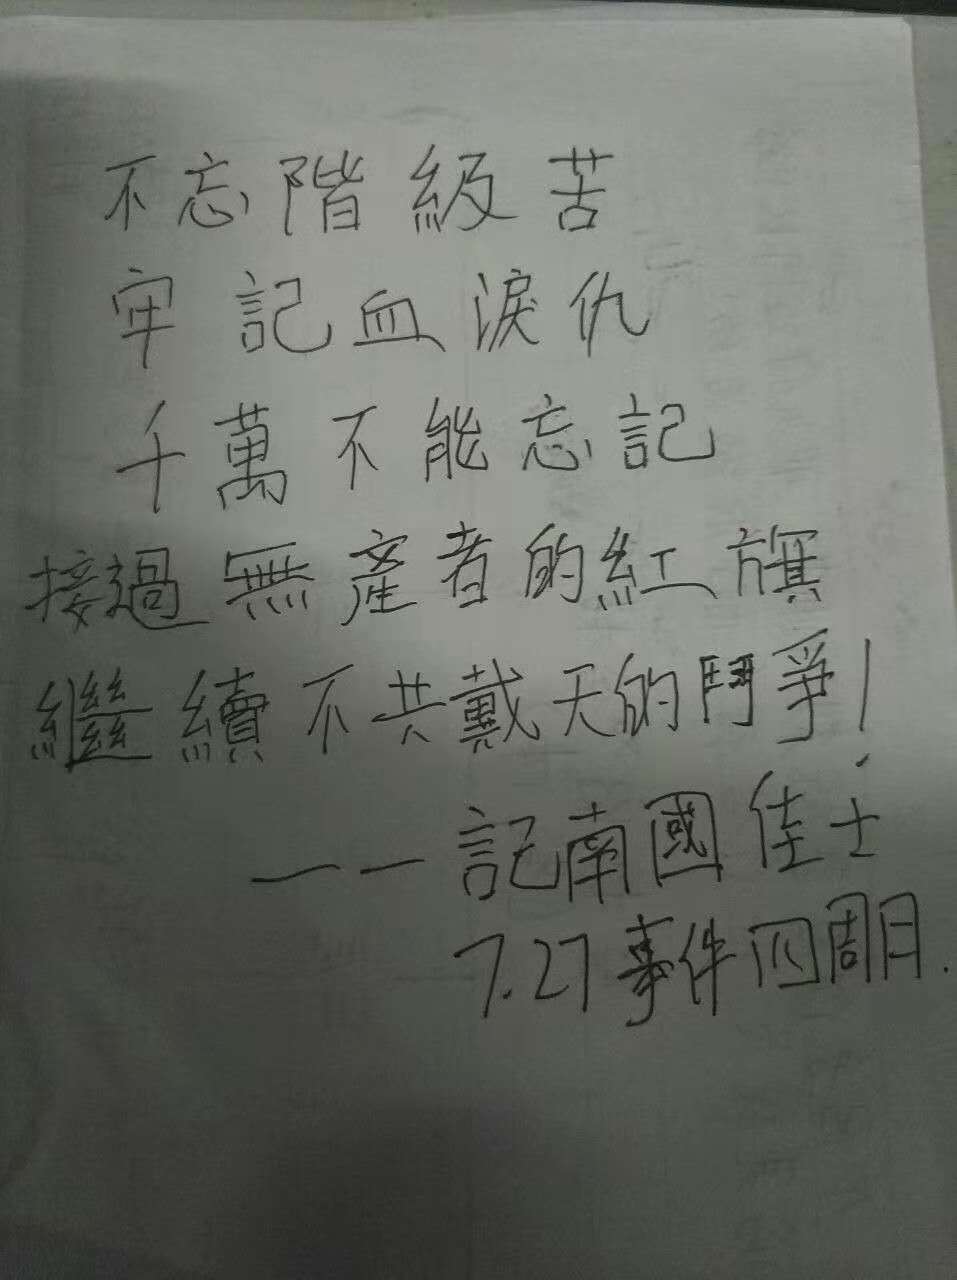 不忘階級苦
牢記血淚仇
千萬不能忘記
接過無產者的紅旗
繼續不共戴天的鬥爭！
——記南國佳士
7.27事件四周月.